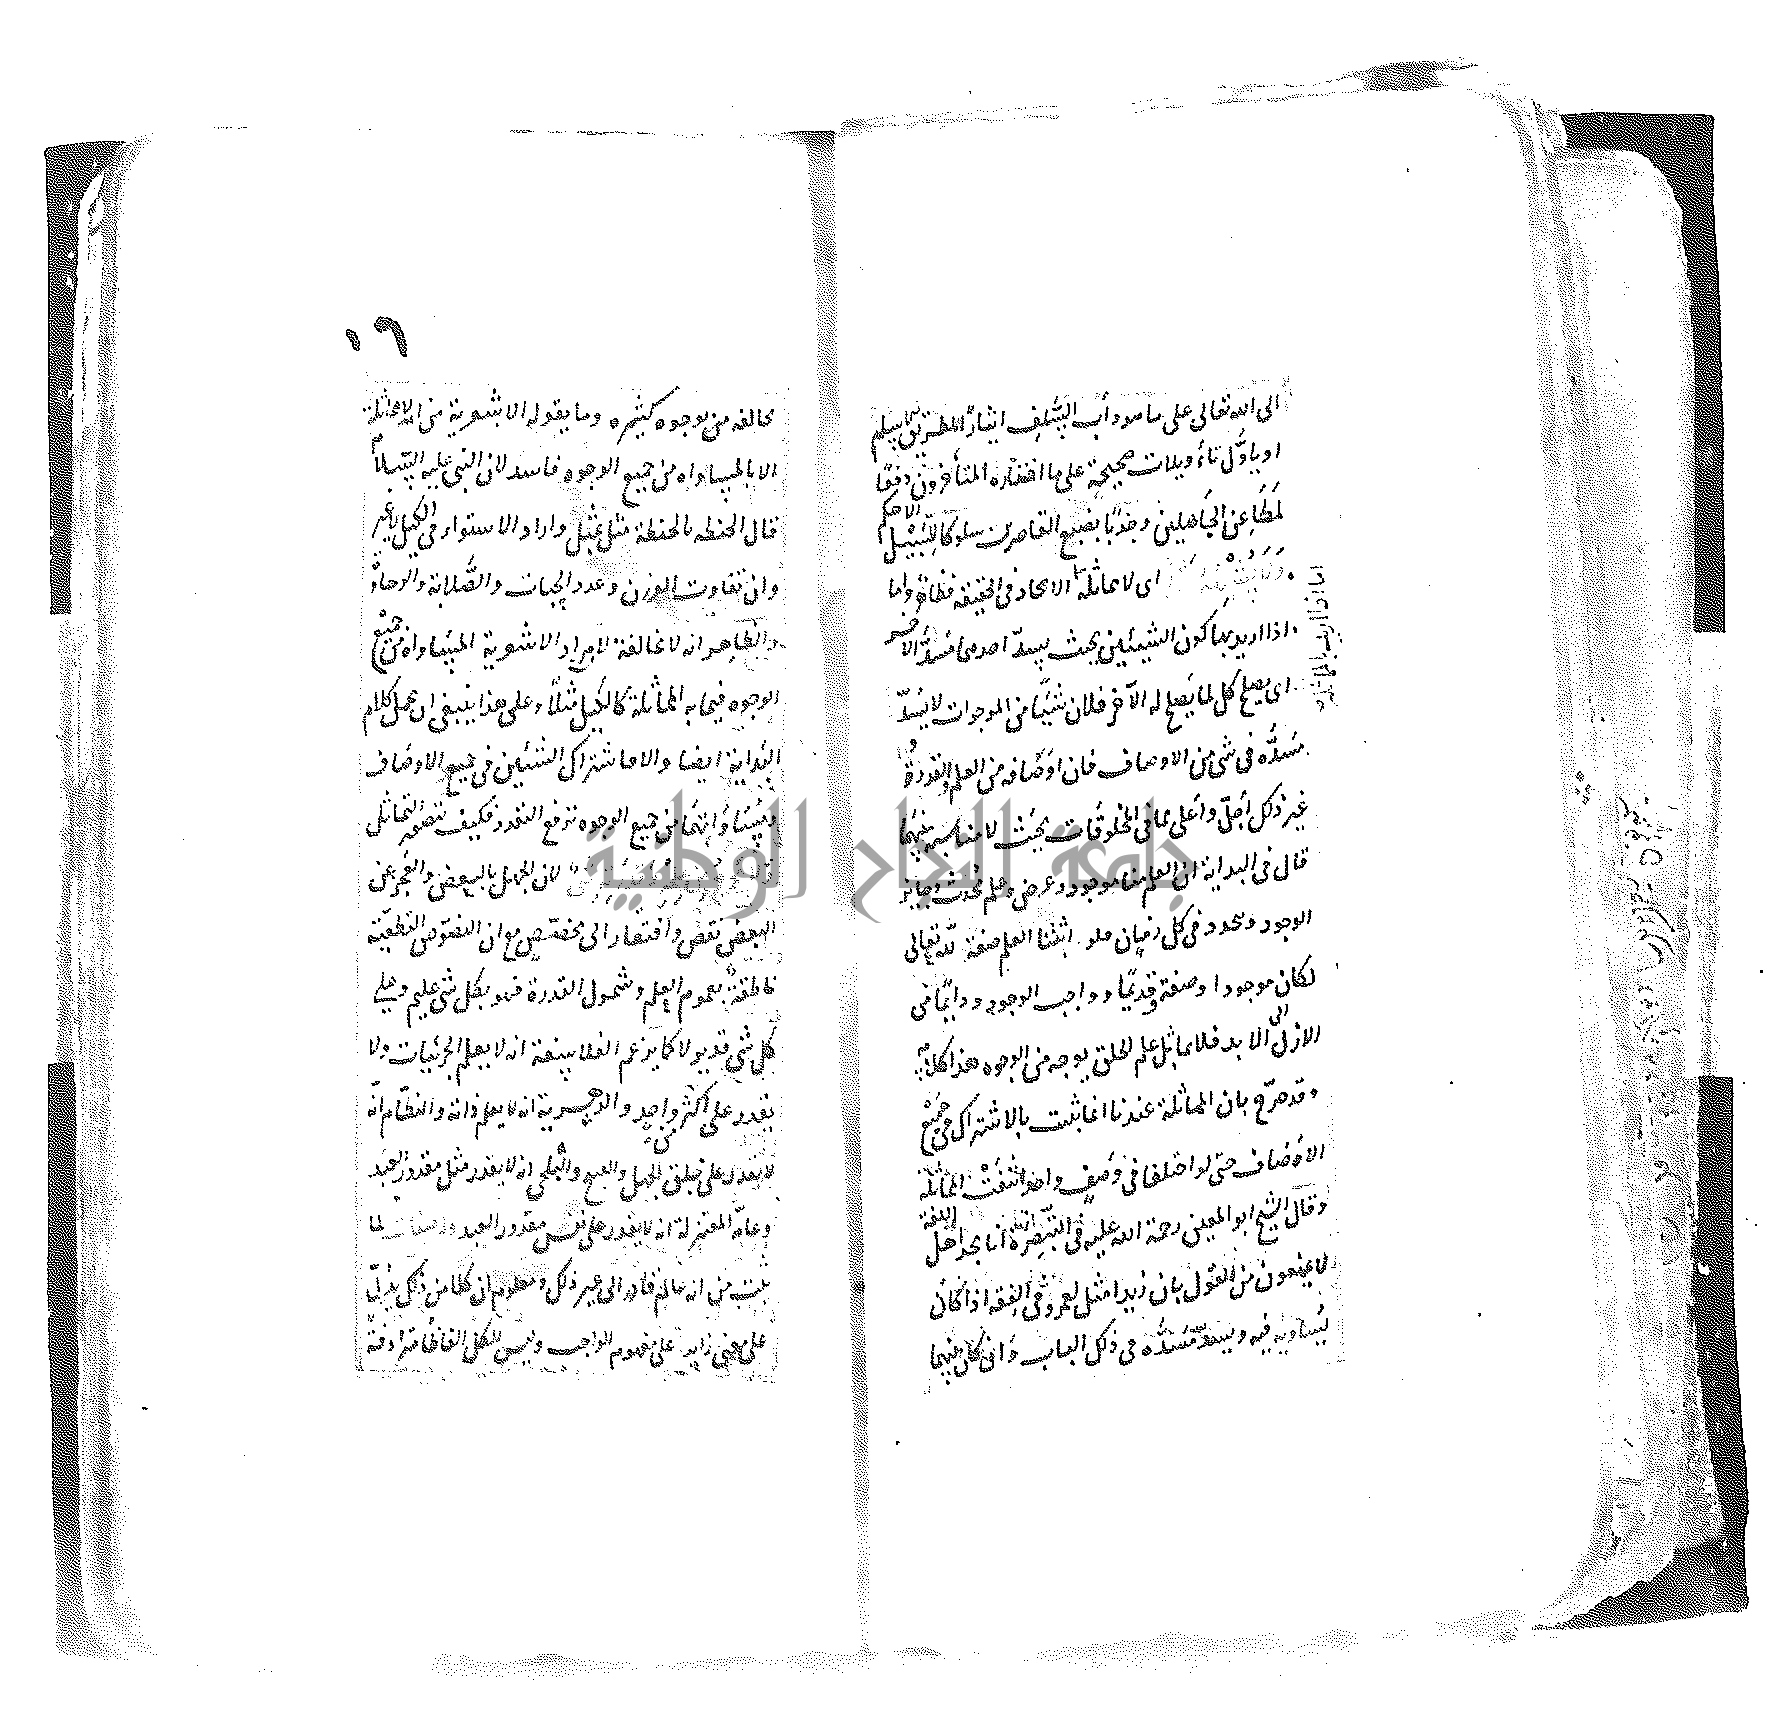 الى الله تعالى على ما هو دأب السلف ايثارا للطريق الاسلم
او ياوّل تأويلات صحيحة على ما اختاره المتأخرون دفعًا
لمطاعن الجاهلين وجذبًا بضبع القاصرين سلوكا للسبيل الاحكم
ولا يشبهه اى لا يماثله الاتحاد فى الحقيقة فظاهر واما
اما اذا اريد بالمماثلة
اذا اريد بها كون الشيئين بحيث يسدّ احدهما مسدّ الاخر
اى يصلح كل لما يصلح له الآخر فلان شيئا من الموجودات لا يسدّ
مسدّه فى شئ من الاوصاف فان اوصافه من العلم والقدرة
غير ذلك أجلّ وأعلى مما فى المخلوقات بحيث لا مناسبة بينهما
قال فى البداية ان العلم منا موجود وعرض وعلم محدث وجايز
الوجود ومجدد فى كل زمان فلو اثبتنا العلم صفة لله تعالى
لكان موجودا وصفة وقديمًا وواجب الوجود ودايمًا فى
الازل الى الابد فلا يماثل علم الخلق بوجه من الوجوه هذا كلامه
وقد صرّح بان المماثلة عندنا انما تثبت بالاشتراك فى جميع
الاوصاف حتى لو اختلفا فى وصف واحد انتفت المماثلة
وقال الشيخ ابو المعين رحمة الله عليه فى التبصرة انا نجد اهل اللغة
لا يمنعون من القول بان زيدا مثل لعمرو فى الفقه اذا كان
يساويه فيه ويسدّ مسدّه فى ذلك الباب وان كان بينهما
١٦
مخالفة من بوجوه كثيره وما يقوله الاشعرية من انه لا مماثلة
الا بالمساواه من جميع الوجوه فاسد لان النبى عليه السلام
قال الحنطه بالحنطة مثل بمثل واراد الاستواء فى الكيل لا غير
وان تفاوت الوزن وعدد الحبات والصّلابة والرخاوة
والظاهر انه لا مخالفة لان مراد الاشعرية المساواه من جميع
الوجوه فيما به المماثلة كالكيل مثلًا وعلى هذا ينبغى ان يحمل كلام
البداية ايضا والا فاشتراك الشيئين فى جميع الاوصاف
ومساواتهما من جميع الوجوه ترفع التعدد فكيف تتصور التماثل
لان الجهل بالبعض والعجز عن
البعض نقص وافتقار الى مخصّص مع ان النصوص القطعيّة
ناطقة بعموم العلم وشمول القدرة فهو بكل شئ عليم وعلى
كل شئ قدير لا كما يزعم الفلاسفة انه لا يعلم الجزئيات ولا
يقدر على أكثر من واحد والدهرية انه لا يعلم ذاته والنظّام انّه
لا يقدر على خلق الجهل والقبح والبلخى انه لا يقدر مثل مقدور العبد
وعامّة المعتزلة انه لا يقدر على نفس مقدور العبد وله صفات لما
ثبت من انه عالم قادر الى غير ذلك ومعلوم ان كلا من ذلك يدلّ
على معنى زايد على مفهوم الواجب وليس الكل الفاظا مترادفة